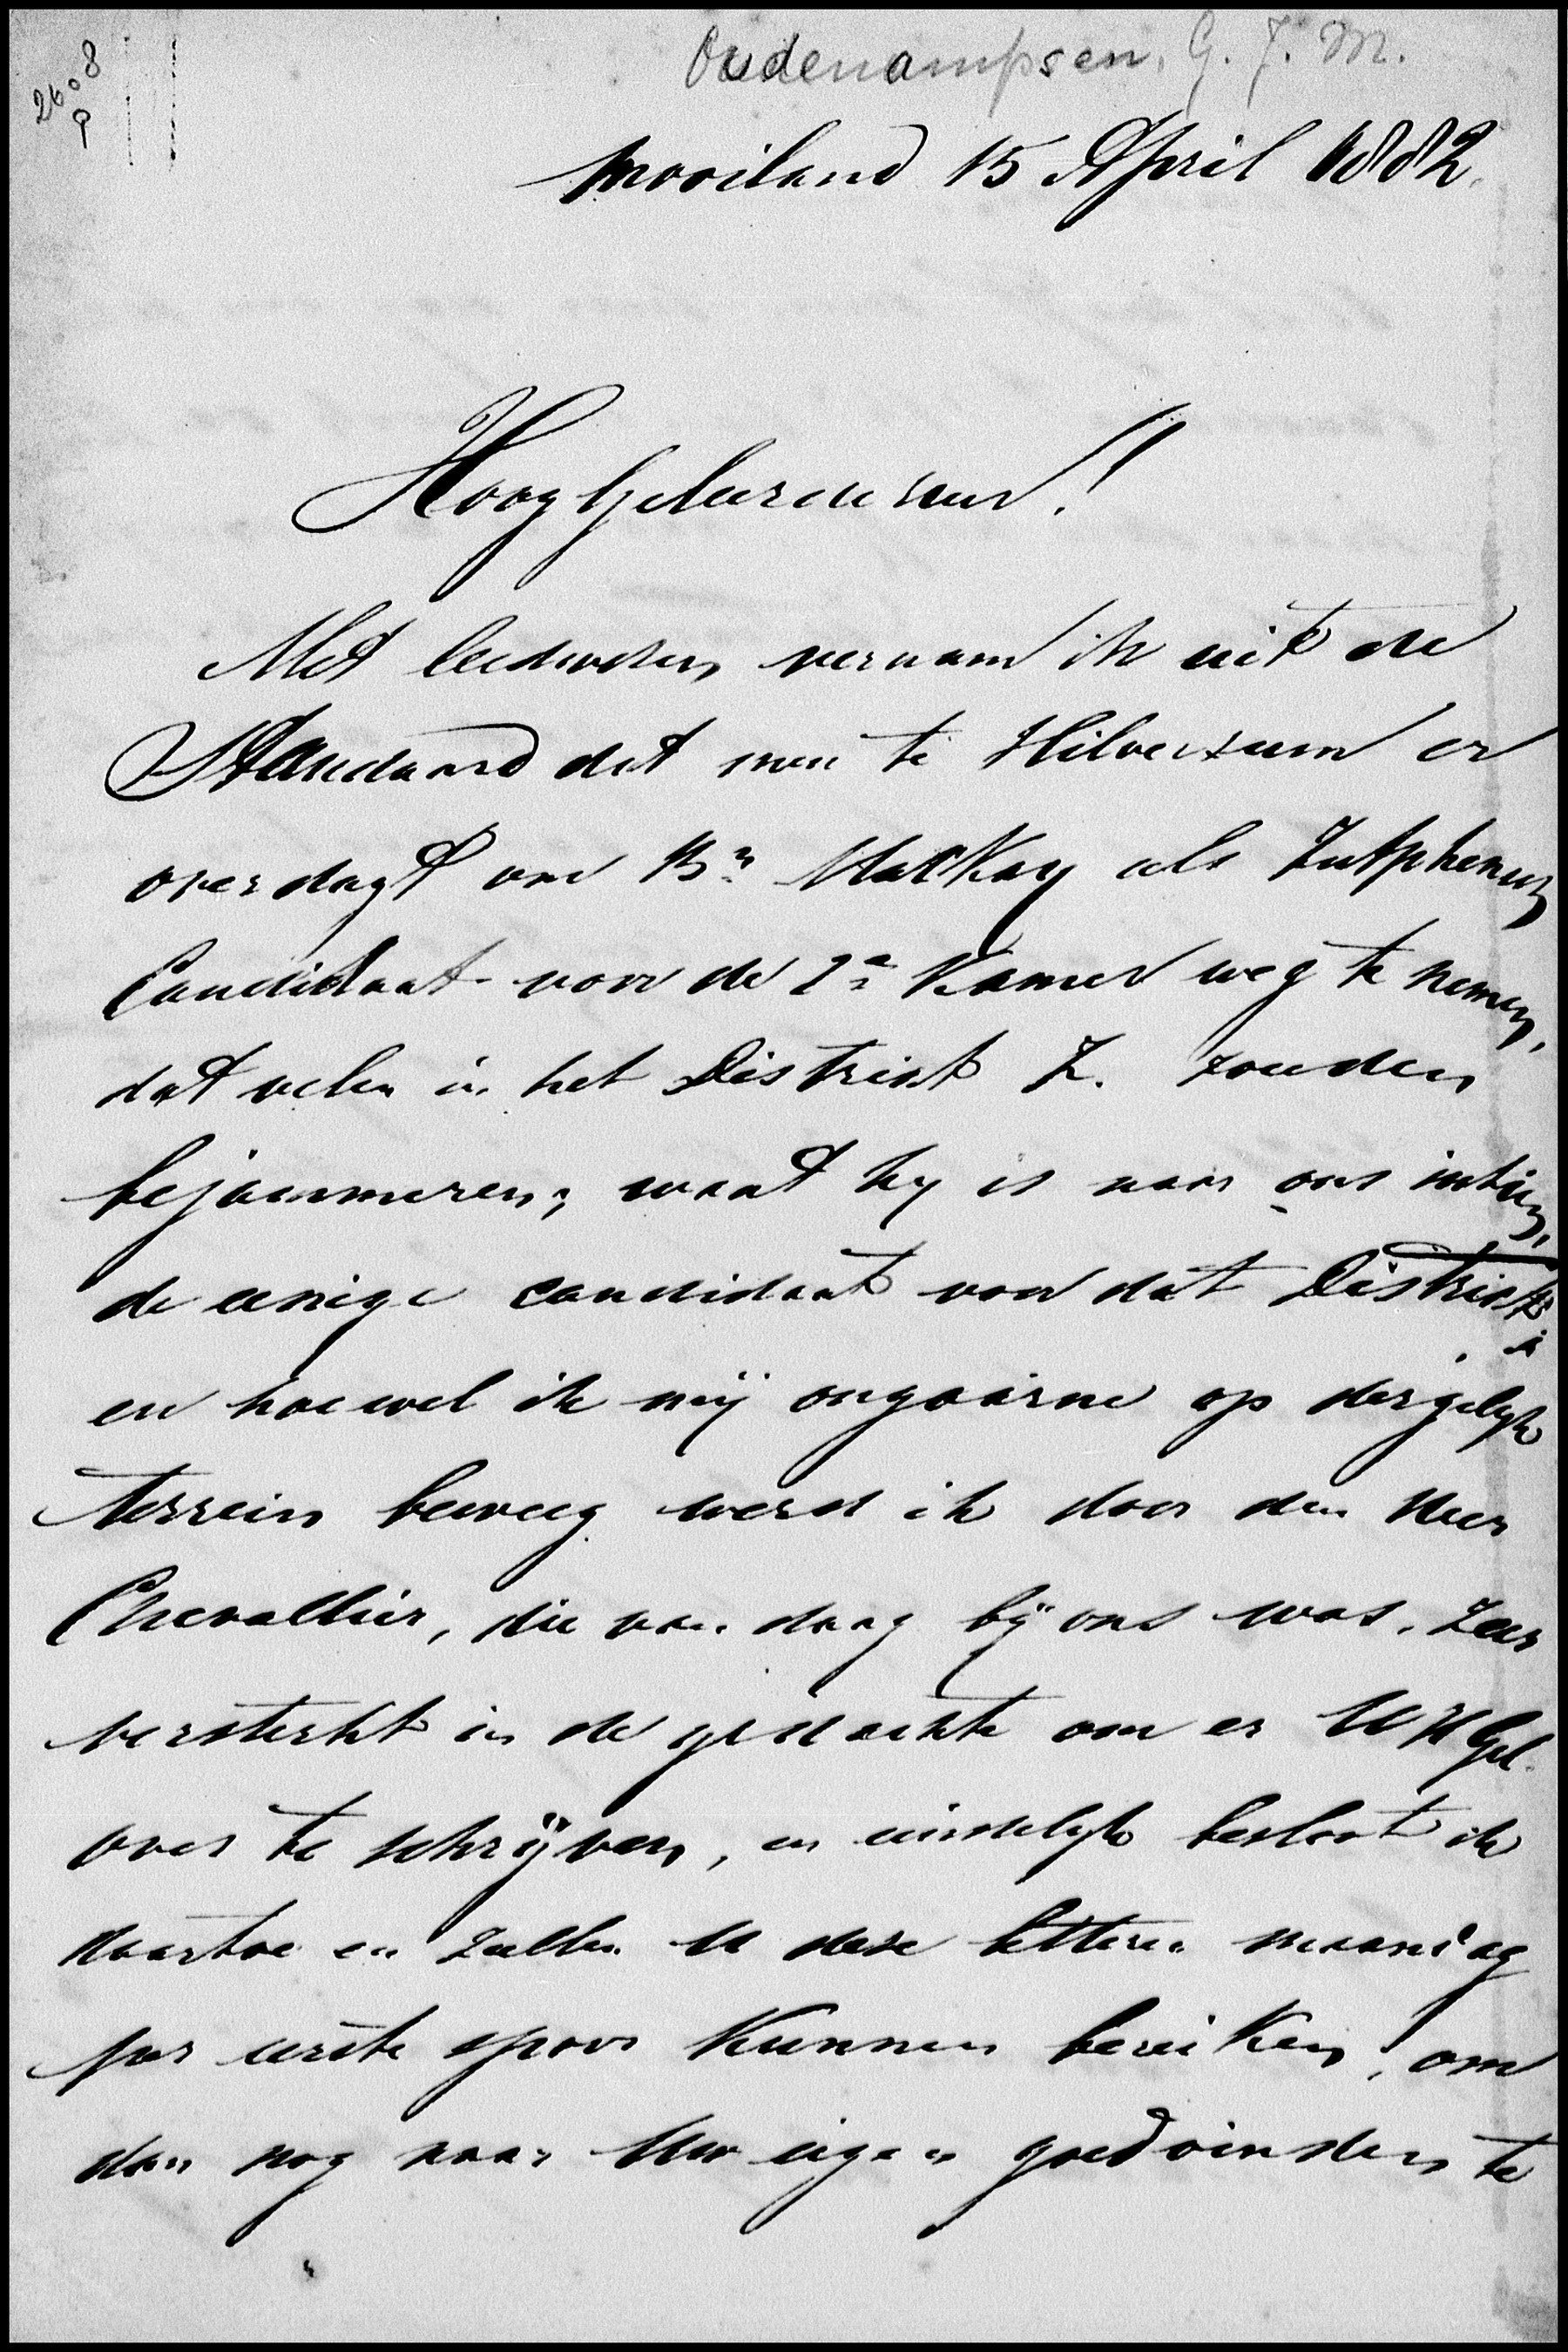 2608
9
Oudenampsen, G. J. M.
Mooiland 15 April 1882.
HoogGeleerde Heer!
Met leedwezen vernam ik uit de
Standaard dat men te Hilversum er
over dagt om Bn MacKay als Zutphensch
Candidaat voor de 2e Kamer weg te nemen,
dat velen in het District Z. zouden
bejammeren; want hy is naar ons inzien,
de eenige candidaat voor dat District;
en hoewel ik mij ongaarne op dergelyk
terrein beweeg werd ik door den Heer
Chevallier, die van daag bij ons was, zeer
versterkt in de gedachte om er UHGel.
over te schrijven, en eindelyk besloot ik
daartoe en zullen U deze letteren maandag
per eerste spoor kunnen bereiken, om
dan nog naar Uw eigen goedvinden te